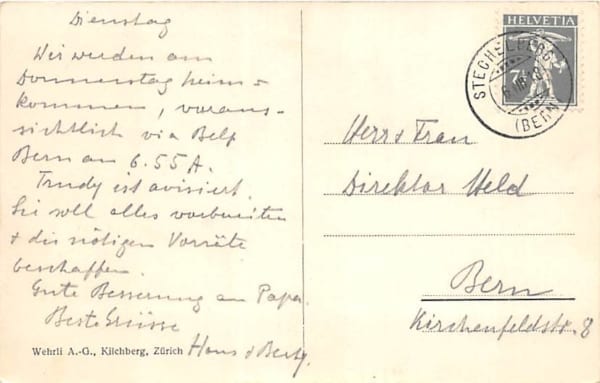 Dienstag
Wir werden am
Donnerstag heim=
kommen, voraus-
sichtlich via Belp
Bern an 6.55 A.
Trudy ist avisiert.
Sie soll alles vorbereiten
+ die nötigen Vorräte
beschaffen.
Gute Besserung an Papa.
Beste Grüsse
Hans & Berty
Wehrli A.-G., Kilchberg, Zürich
HELVETIA
7½
STECHELBERG
(BERN)
Herr & Frau
Direktor Weld
Bern
Kirchenfeldstr. 8